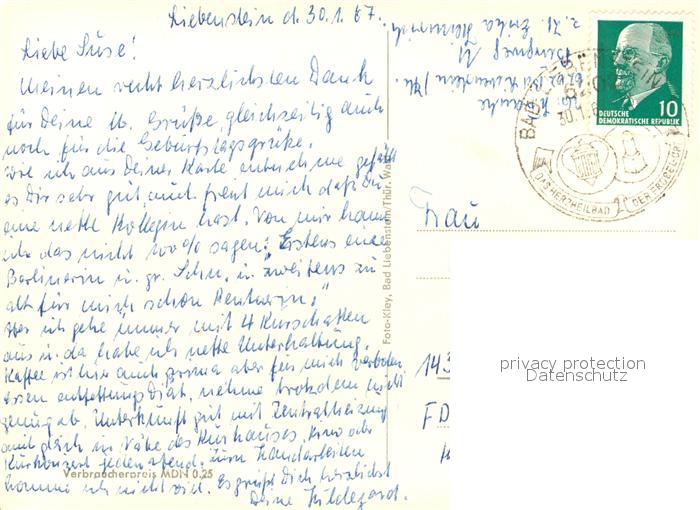 Liebenstein d. 30.1.67.
Liebe Suse!
Meinen recht herzlichsten Dank
für Deine lb. Grüße, gleichzeitig auch
noch für die Geburtstagsgrüße.
Wie ich aus Deiner Karte entnehme gefällt
es Dir sehr gut, auch freut mich daß Du
eine nette Kollegin hast. Von mir kann
ich das nicht 100% sagen: Erstens eine
Berlinerin u. gr. u. zweitens zu
alt für mich schon Rentnerin."
Aber ich gehe immer mit 4 Kurschatten
aus u. da habe ich nette Unterhaltung.
Kaffee ist hier auch prima aber für mich verboten
Essen entfettungsdiät, nehme trotzdem nicht
genug ab. Unterkunft gut mit Zentralheizung
und gleich in Nähe des Kurhauses. Kino oder
Kurkonzert jeden abend. Zum Handarbeiten
komme ich nicht viel. Es grüßt Dich herzlichst
Deine Hildegard.
Verbraucherpreis MDN 0.25
Foto-Kley, Bad Liebenstein/Thür. Wald
z. Zt. Erika
Bad Liebenstein/Th.
BAD LIEBENSTEIN
30.1.6
DAS HERZHEILBAD DER ERDE
DEUTSCHE
DEMOKRATISCHE REPUBLIK
10
Frau
143
FD
privacy protection
Datenschutz